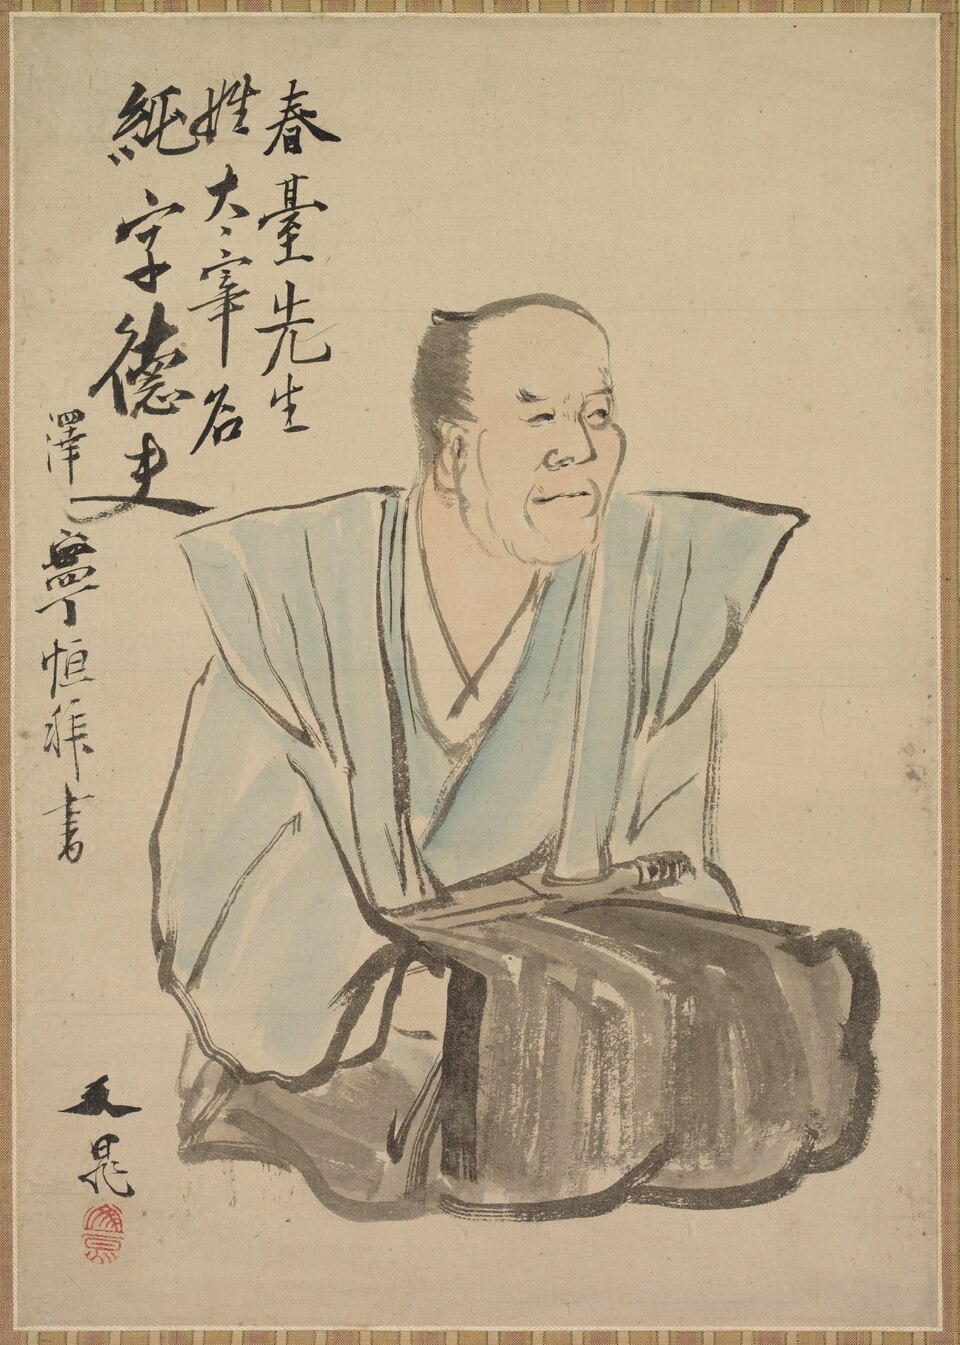 春臺先生
姓太宰名
純字德夫
澤寧恒雅書
文晁